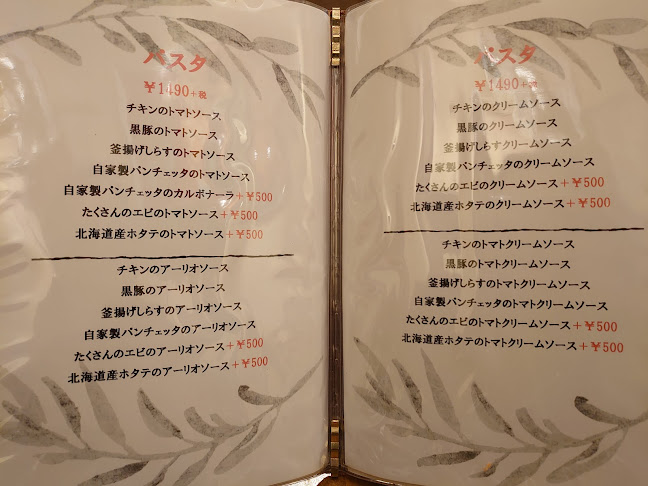 パスタ
￥1490+税
チキンのトマトソース
黒豚のトマトソース
釜揚げしらすのトマトソース
自家製パンチェッタのトマトソース
自家製パンチェッタのカルボナーラ+￥500
たくさんのエビのトマトソース+￥500
北海道産ホタテのトマトソース+￥500
チキンのアーリオソース
黒豚のアーリオソース
釜揚げしらすのアーリオソース
自家製パンチェッタのアーリオソース
たくさんのエビのアーリオソース+￥500
北海道産ホタテのアーリオソース+￥500
パスタ
￥1490+税
チキンのクリームソース
黒豚のクリームソース
釜揚げしらすクリームソース
自家製パンチェッタのクリームソース
たくさんのエビのクリームソース+￥500
北海道産ホタテのクリームソース+￥500
チキンのトマトクリームソース
黒豚のトマトクリームソース
釜揚げしらすのトマトクリームソース
自家製パンチェッタのトマトクリームソース
たくさんのエビのトマトクリームソース+￥500
北海道産ホタテのトマトクリームソース+￥500